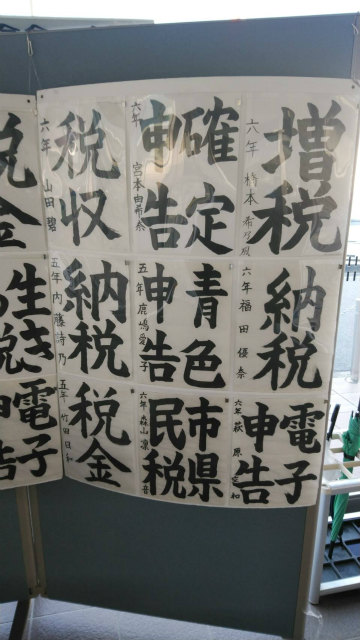 増税
六年
確定
申告
六年 宮本由希奈
税収
六年 山田碧
納税
六年 福田優奈
青色
申告
五年 鹿嶋愛子
納税
五年 内藤詩乃
電子
申告
六年 萩原
市県
民税
六年 森山凛音
税金
五年 竹田日和
税金
生き
税
電子
申告